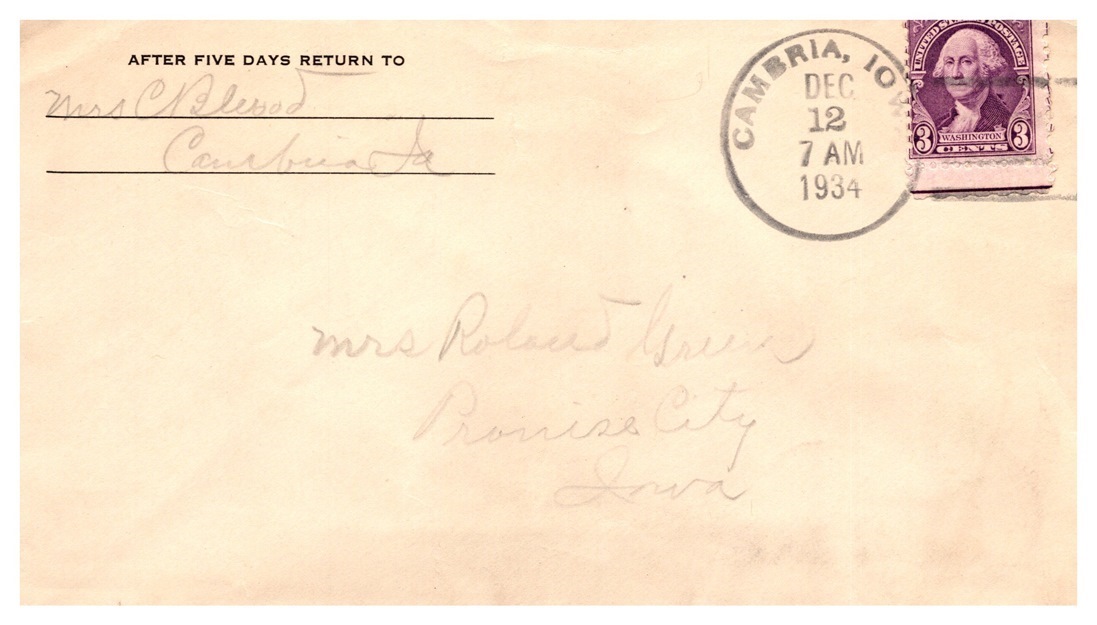 AFTER FIVE DAYS RETURN TO
Mrs C
Cambria Ia
CAMBRIA, IOWA
DEC
12
7 AM
1934
UNITED STATES POSTAGE
3 WASHINGTON 3
CENTS
Mrs Roland Green
Promise City
Iowa